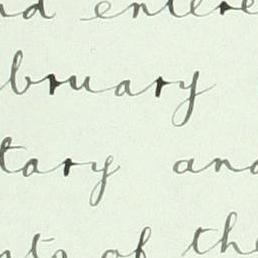 nd entere
bruary
tary and
nts of the